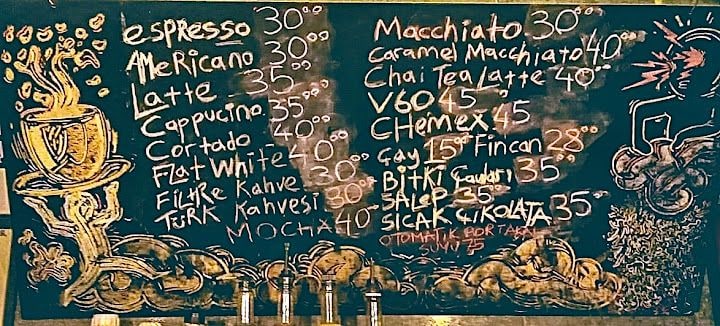 espresso 30⁰⁰
AMeRicano 30⁰⁰
Latte - 35⁰⁰
Cappucino 35⁰⁰
Cortado - 40⁰⁰
Flat White 40⁰⁰
FiLtRe Kahve 30⁰⁰
TÜRK Kahvesi 30⁰⁰
MOCHA 40⁰⁰
Macchiato 30⁰⁰
Caramel Macchiato 40⁰⁰
Chai Tea Latte 40⁰⁰
V60 45⁰⁰
CHemex 45
Çay 15⁰⁰ Fincan 28⁰⁰
BİTKİ Çayları 35⁰⁰
SALEP 35⁰⁰
SICAK ÇİKOLATA 35⁰⁰
OTOMATİK PORTAKAL
SUYU 75